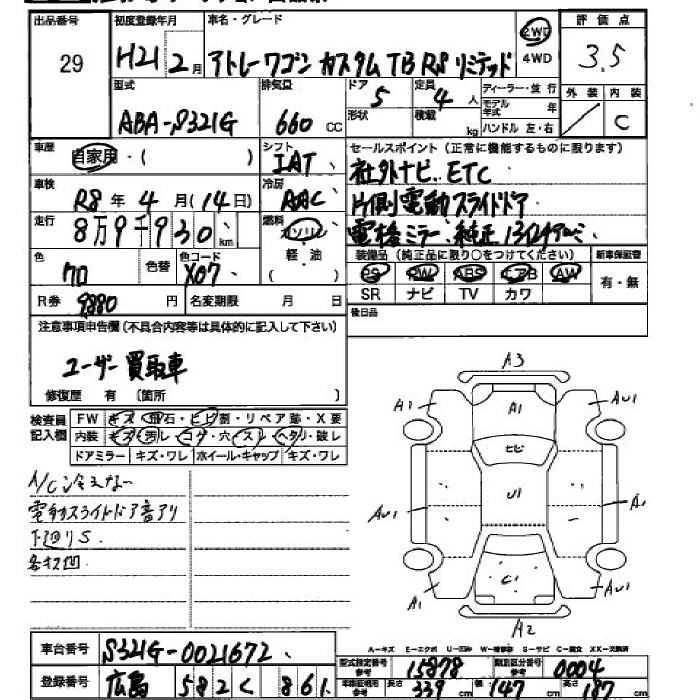 出品番号 初度登録年月 車名・グレード 評価点
29 H21 2月 アトレーワゴン カスタムTB RSリミテッド 2WD 4WD 3.5
型式 排気量 ドア 定員 ディーラー・並行 外装 内装
ABA-S321G 660 cc 5 4人 モデル年式 年 C
形状 積載 kg ハンドル 左・右
車歴 自家用・( ) シフト IAT セールスポイント(正常に機能するものに限ります)
車検 R8年4月(14日) 冷房 AAC 社外ナビ、ETC
走行 8万9千930km 燃料 ガソリン 軽・油 片側電動スライドドア
電格ミラー、純正13インチアルミ
色 クロ 色替 色コード X07 装備品(純正品に限り○をつけてください) 新車保証書
PS PW ABS エアB AW 有・無
SR ナビ TV カワ
R券 9880円 名変期限 月 日 後日品
注意事項申告欄(不具合内容等は具体的に記入して下さい)
ユーザー買取車
修復歴 有 〔箇所 〕
検査員記入欄 FW キズ・飛石・ヒビ割・リペア跡・X要
内装 キズ・汚レ・コゲ・穴・スレ・ヘタリ・破レ
ドアミラー キズ・ワレ ホイール・キャップ キズ・ワレ
A/C冷えない
電動スライドドア音アリ
下廻りS
各キズ凹
A3
A1 A1 AU1
ヒビ
AU1 U1 A1
C1
A1 AU1
A2
A-キズ E-エクボ U-凹み W-補修跡 S-サビ C-腐立 XX-交換済
車台番号 S321G-0021672 型式指定番号 参考 15878 類別区分番号 参考 0004
登録番号 広島 582 く 861 車両証明用 参考 長さ 339cm 幅 147cm 高さ 187cm